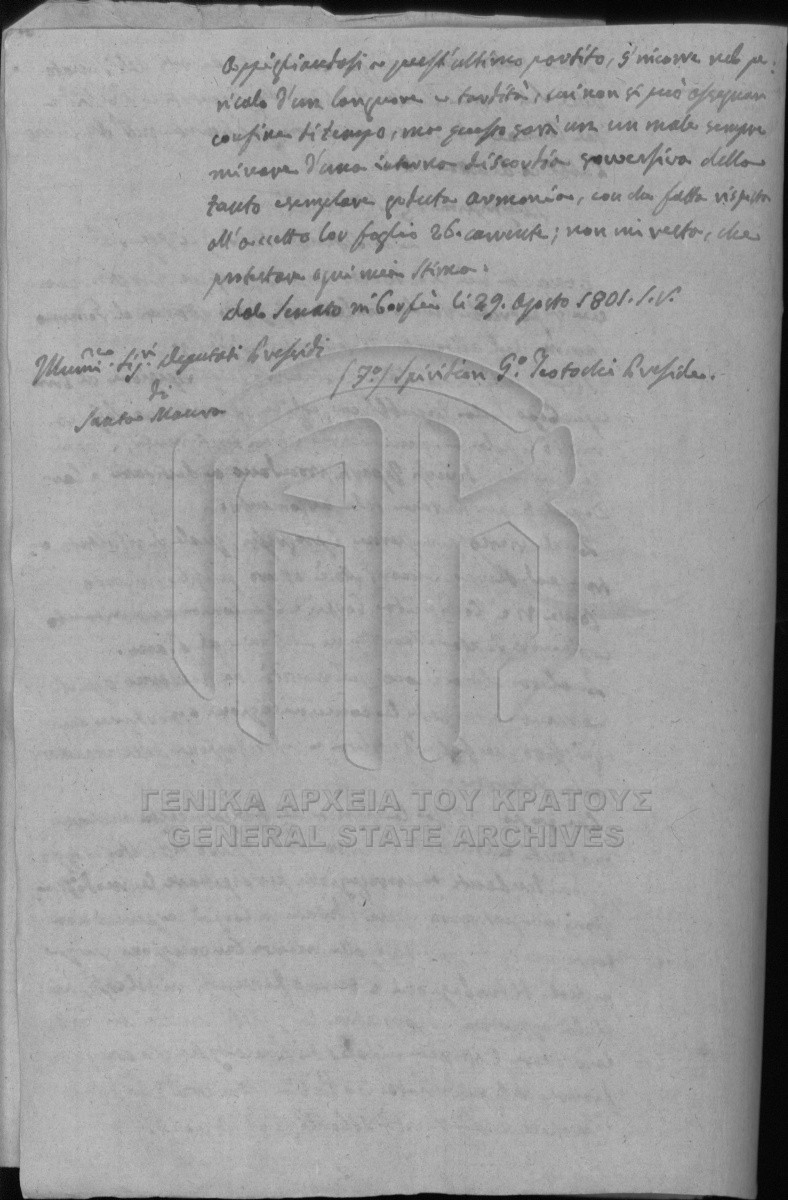 Appigliandosi a quest'ultimo partito, s'incorre nel pe:
ricolo d'un languore e tardità, cui non si può assegnar
confine di tempo, ma questo sarà un male sempre
minore d'una interna discordia sovversiva della
tanto esemplare goduta armonia, con che fatta risposta
all'accetto lor foglio 26. corrente; non mi resta, che
protestare ogni mia stima.
dal Senato in Corfù li 29. Agosto 1801. S.V.
Illumi.ci Sig.ri Deputati Presidi
di
Santa Maura
Spiridion G.o Teotochi Preside.
ΓΕΝΙΚΑ ΑΡΧΕΙΑ ΤΟΥ ΚΡΑΤΟΥΣ
GENERAL STATE ARCHIVES